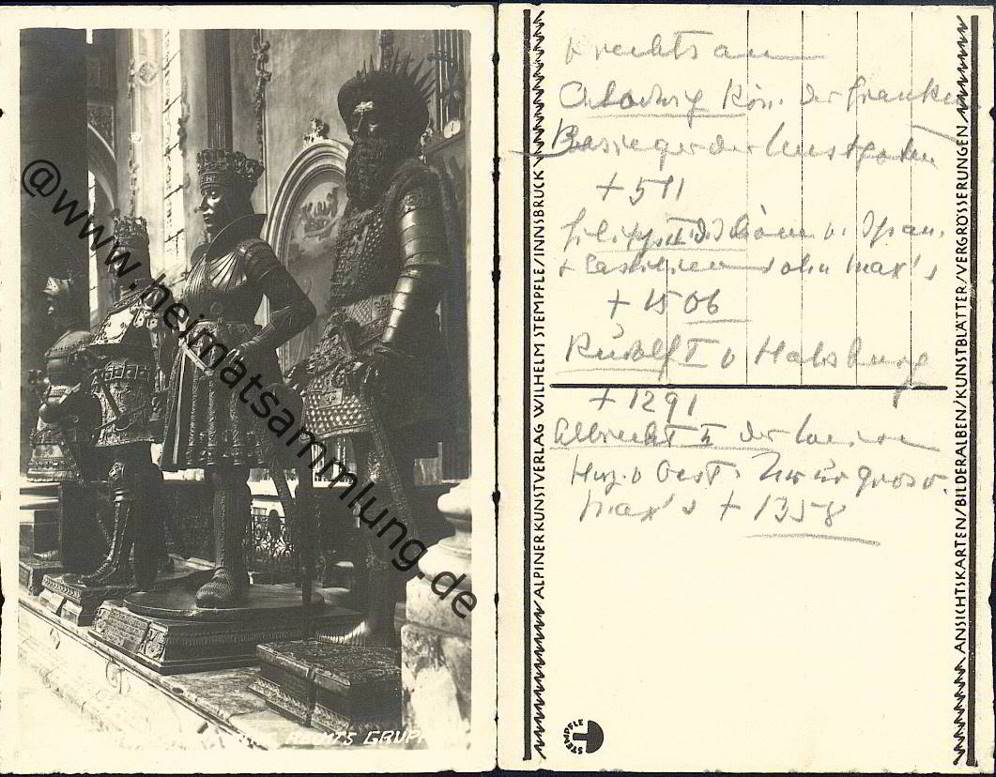 @www.heimatsammlung.de
RECHTS GRUPPE
ALPINER KUNSTVERLAG WILHELM STEMPFLE/INNSBRUCK
+ rechts
Chlodwig Kön. der Franken
Besieger der Westgoten
+ 511
v. Span.
+ Castilien Sohn Max's
+ 1506
Rudolf I v Habsburg
+ 1291
Albrecht II der Weise
Herz. v Oest. Urur
Max's + 1358
ANSICHTSKARTEN/BILDERALBEN/KUNSTBLÄTTER/VERGRÖSSERUNGEN
STEMPFLE